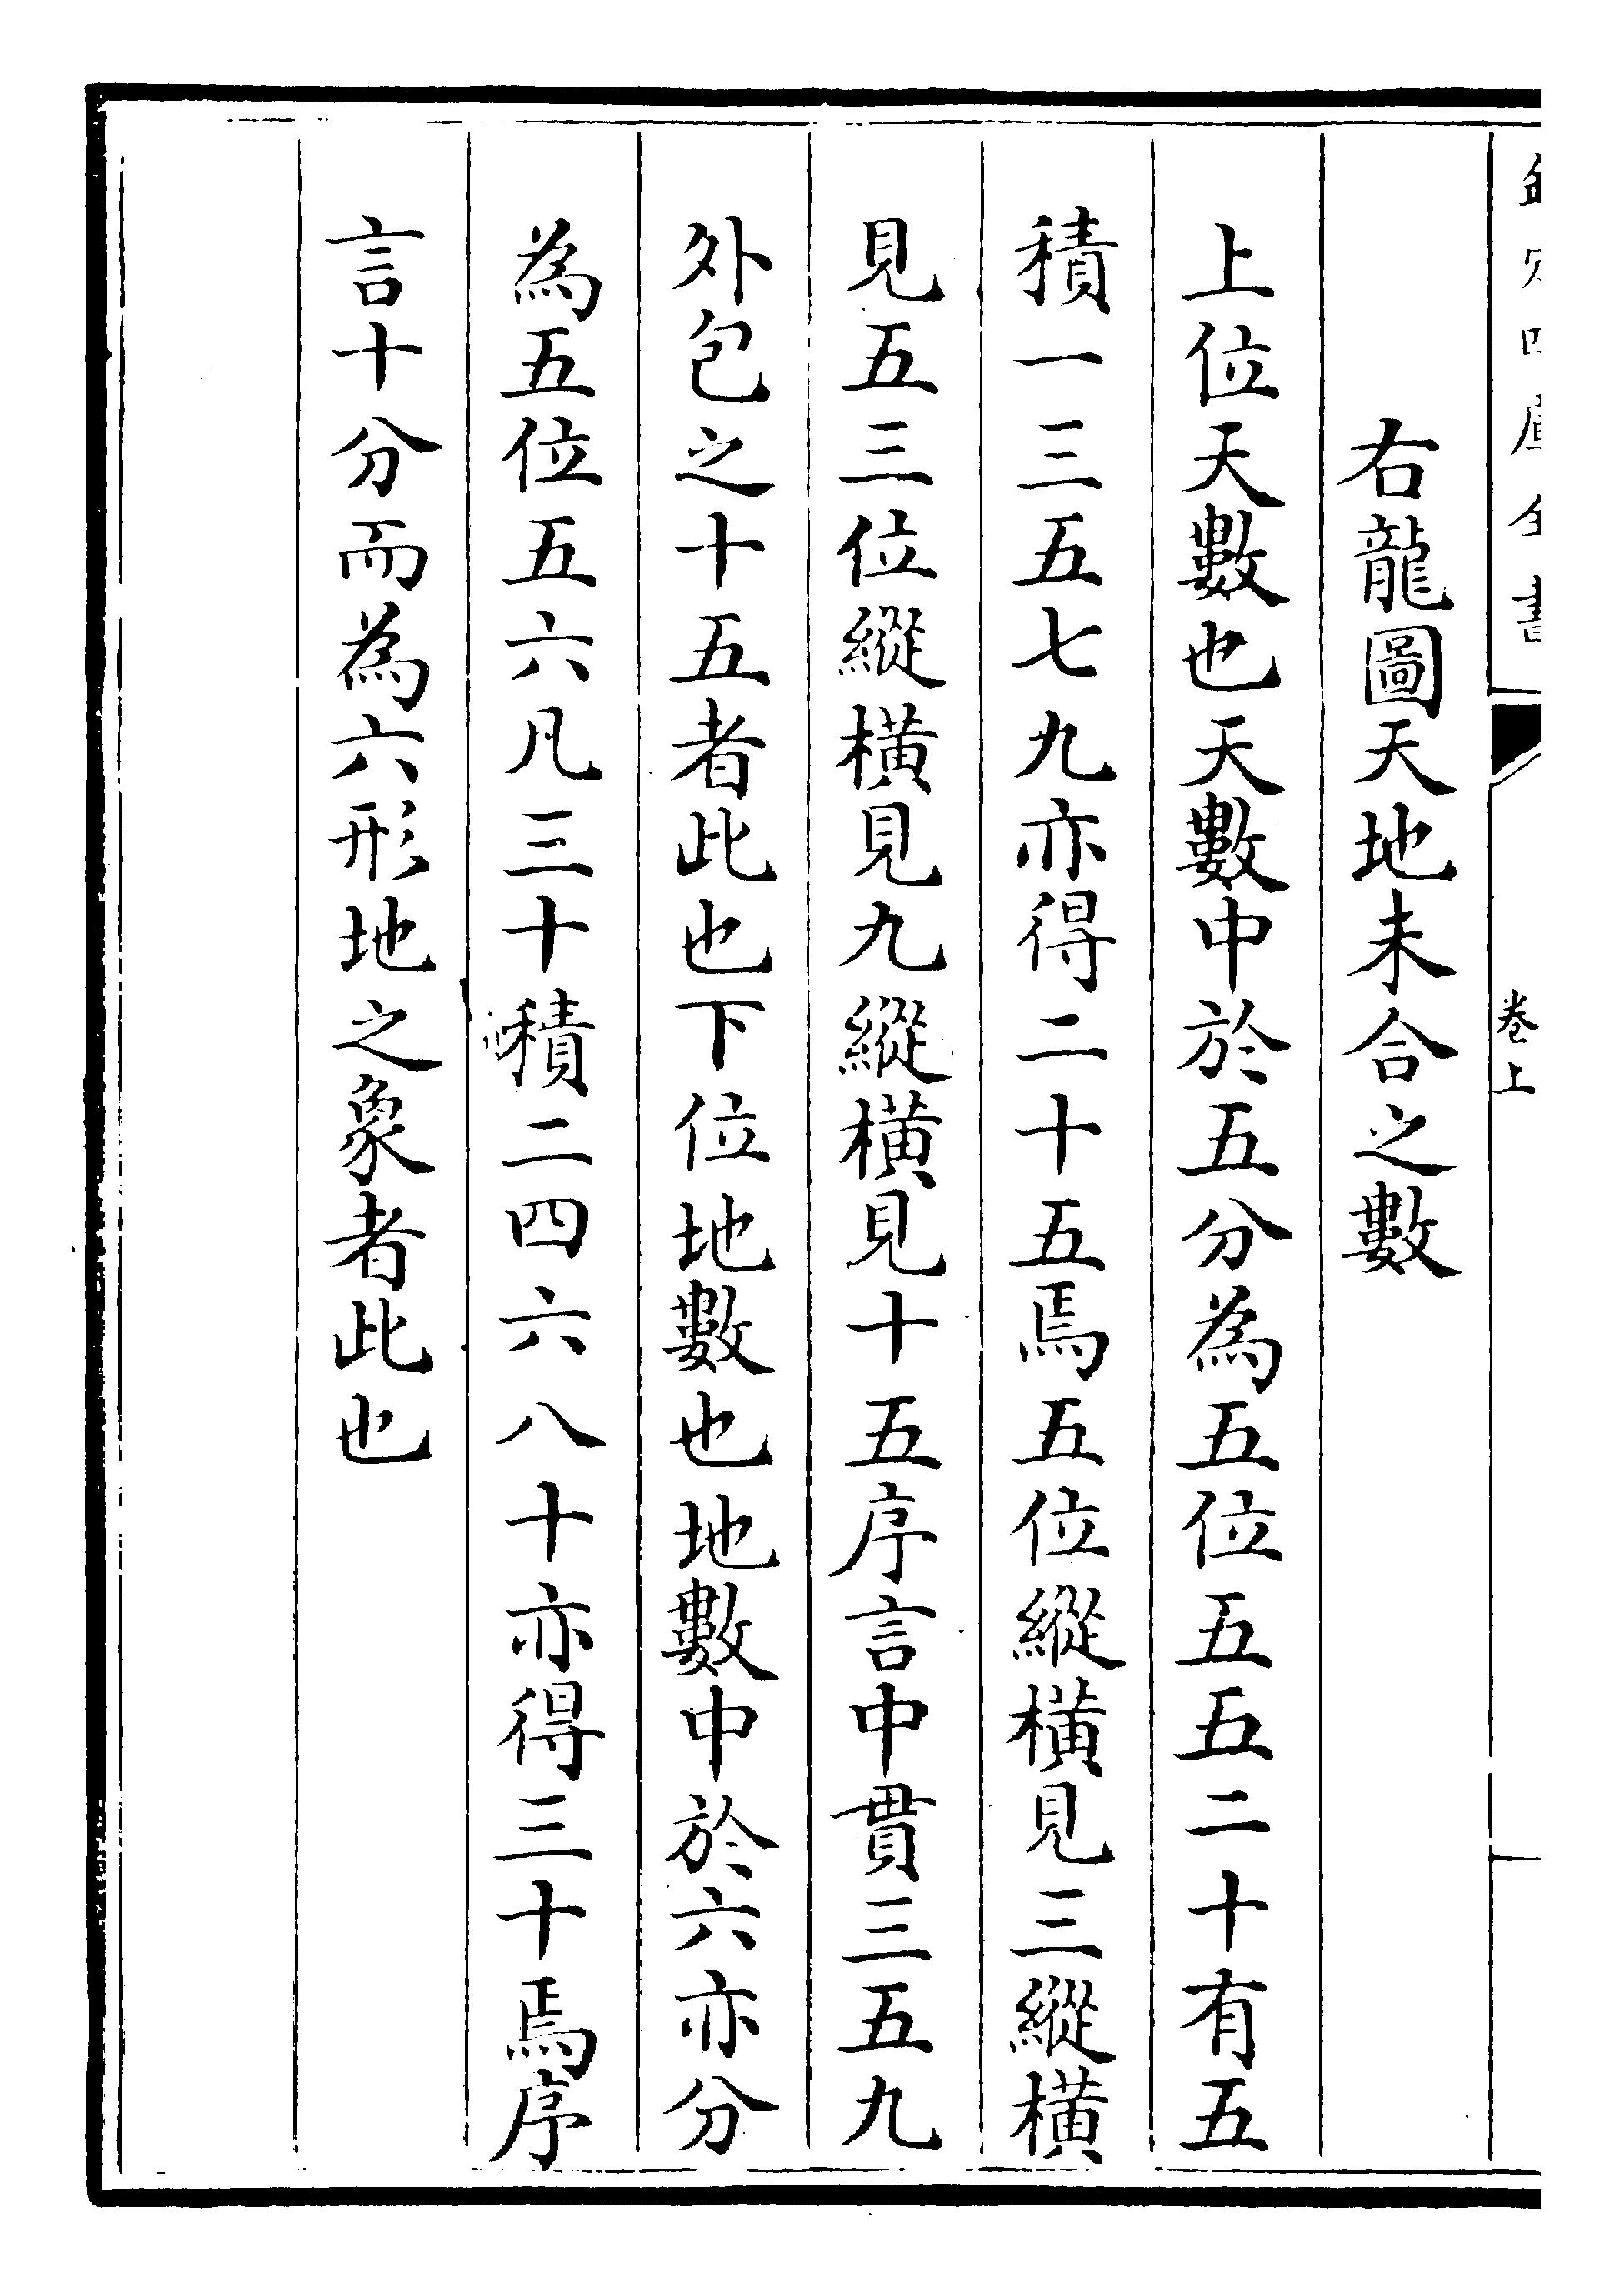 欽定四庫全書
卷上
右龍圖天地未合之數
上位天數也天數中於五分為五位五五二十有五
積一三五七九亦得二十五焉五位縱橫見三縱橫
見五三位縱橫見九縱橫見十五序言中貫三五九
外包之十五者此也下位地數也地數中於六亦分
為五位五六凡三十積二四六八十亦得三十焉序
言十分而為六形地之象者此也